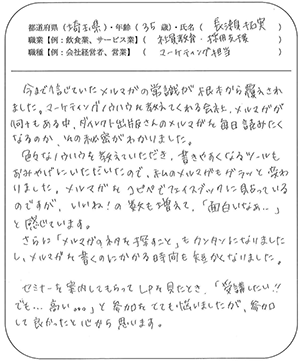 都道府県（埼玉県）・年齢（35歳）・氏名（長瀬拓実）
職業【例：飲食業、サービス業】（社員教育・採用支援）
職種【例：会社経営者、営業】（マーケティング担当）
今まで信じていたメルマガの常識が根本から覆えされ
ました。マーケティングノウハウを教えてくれる会社、メルマガが
何十もある中、ダイレクト出版さんのメルマガを毎日読みたく
なるのか、その秘密がわかりました。
色々なノウハウを教えていただき、書きやすくなるツールも
おみやげにいただいたので、私のメルマガもガラッと変わ
りました。メルマガをコピペでフェイスブックに貼っている
のですが、いいね！の数も増えて、「面白いなぁ…」
と感じています。
さらに「メルマガのネタを探すこと」もカンタンになりました
し、メルマガを書くのにかかる時間も短かくなりました。
セミナーを案内してもらってLPを見たとき、「受講したい！！
でも…高い。。。」と参加をとても悩いましたが、参加
して良かったと心から思います。